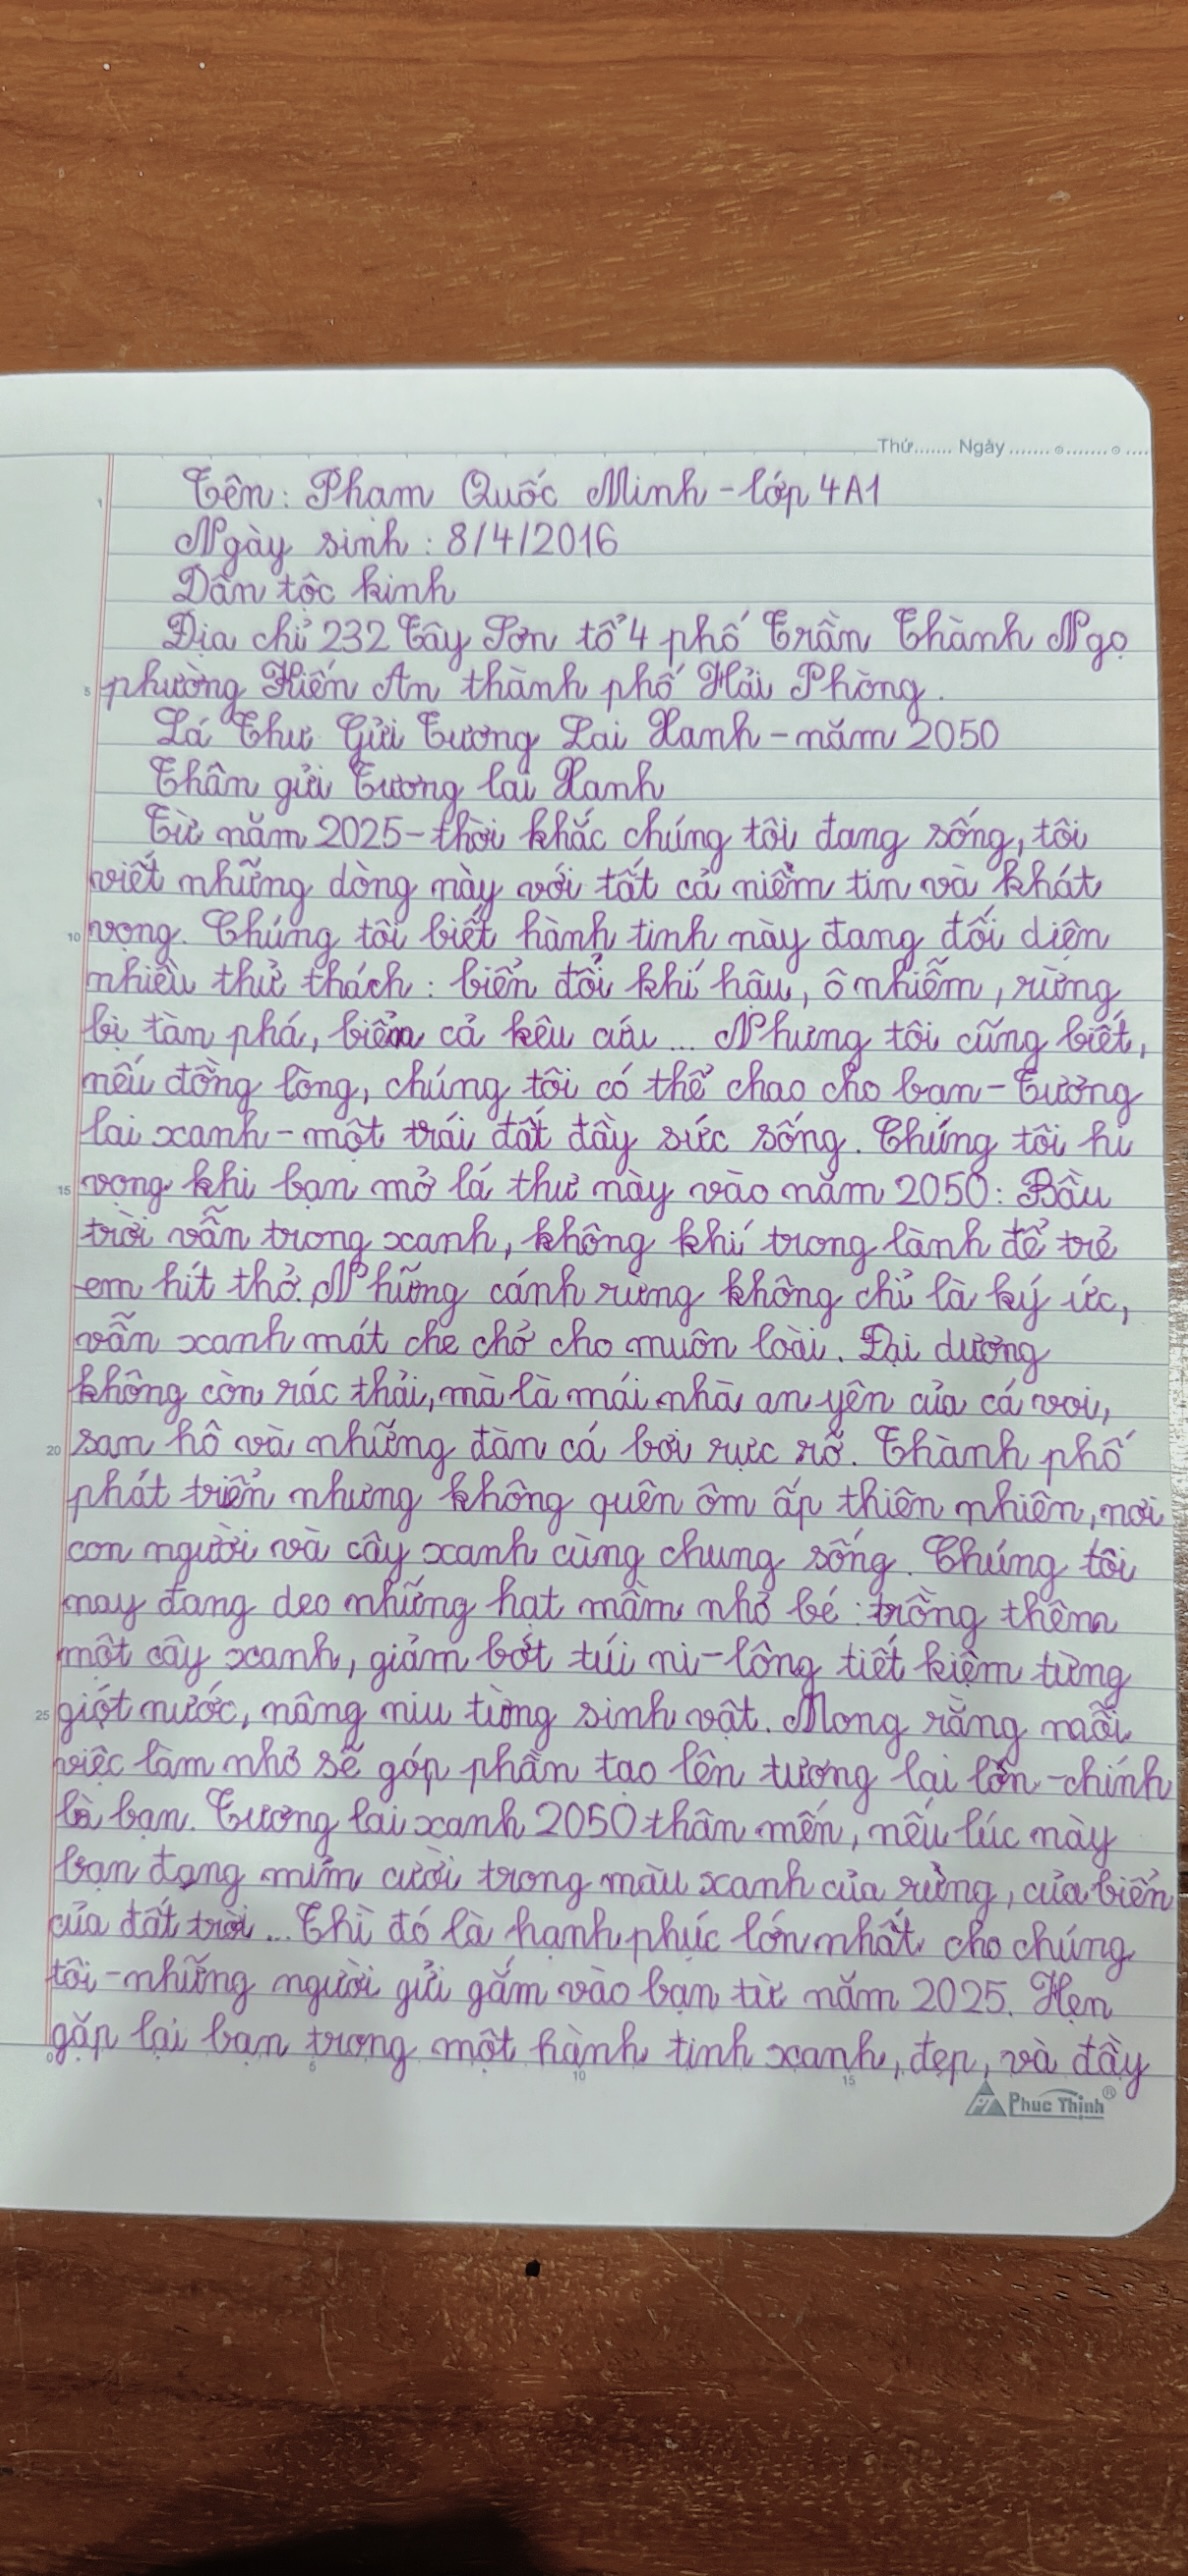 Thứ....... Ngày .......
Tên: Phạm Quốc Minh - lớp 4A1
Ngày sinh : 8/4/2016
Dân tộc kinh
Địa chỉ 232 Tây Sơn tổ 4 phố Trần Thành Ngọ
phường Kiến An thành phố Hải Phòng.
Lá Thư Gửi Tương Lai Xanh - năm 2050
Thân gửi Tương lai Xanh
Từ năm 2025 - thời khắc chúng tôi đang sống, tôi
viết những dòng này với tất cả niềm tin và khát
vọng. Chúng tôi biết hành tinh này đang đối diện
nhiều thử thách : biến đổi khí hậu, ô nhiễm, rừng
bị tàn phá, biển cả kêu cứu... Nhưng tôi cũng biết,
nếu đồng lòng, chúng tôi có thể chao cho bạn - Tương
lai xanh - một trái đất đầy sức sống. Chúng tôi hi
vọng khi bạn mở lá thư này vào năm 2050: Bầu
trời vẫn trong xanh, không khí trong lành để trẻ
em hít thở. Những cánh rừng không chỉ là ký ức,
vẫn xanh mát che chở cho muôn loài. Đại dương
không còn rác thải, mà là mái nhà an yên của cá voi,
san hô và những đàn cá bơi rực rỡ. Thành phố
phát triển nhưng không quên ôm ấp thiên nhiên, nơi
con người và cây xanh cùng chung sống. Chúng tôi
nay đang deo những hạt mầm nhỏ bé : trồng thêm
một cây xanh, giảm bớt túi ni-lông tiết kiệm từng
giọt nước, nâng niu từng sinh vật. Mong rằng mỗi
việc làm nhỏ sẽ góp phần tạo lên tương lai lớn - chính
là bạn. Tương lai xanh 2050 thân mến, nếu lúc này
bạn đang mỉm cười trong màu xanh của rừng, của biển
của đất trời... Thì đó là hạnh phúc lớn nhất cho chúng
tôi - những người gửi gắm vào bạn từ năm 2025. Hẹn
gặp lại bạn trong một hành tinh xanh, đẹp, và đầy
Phuc Thinh®